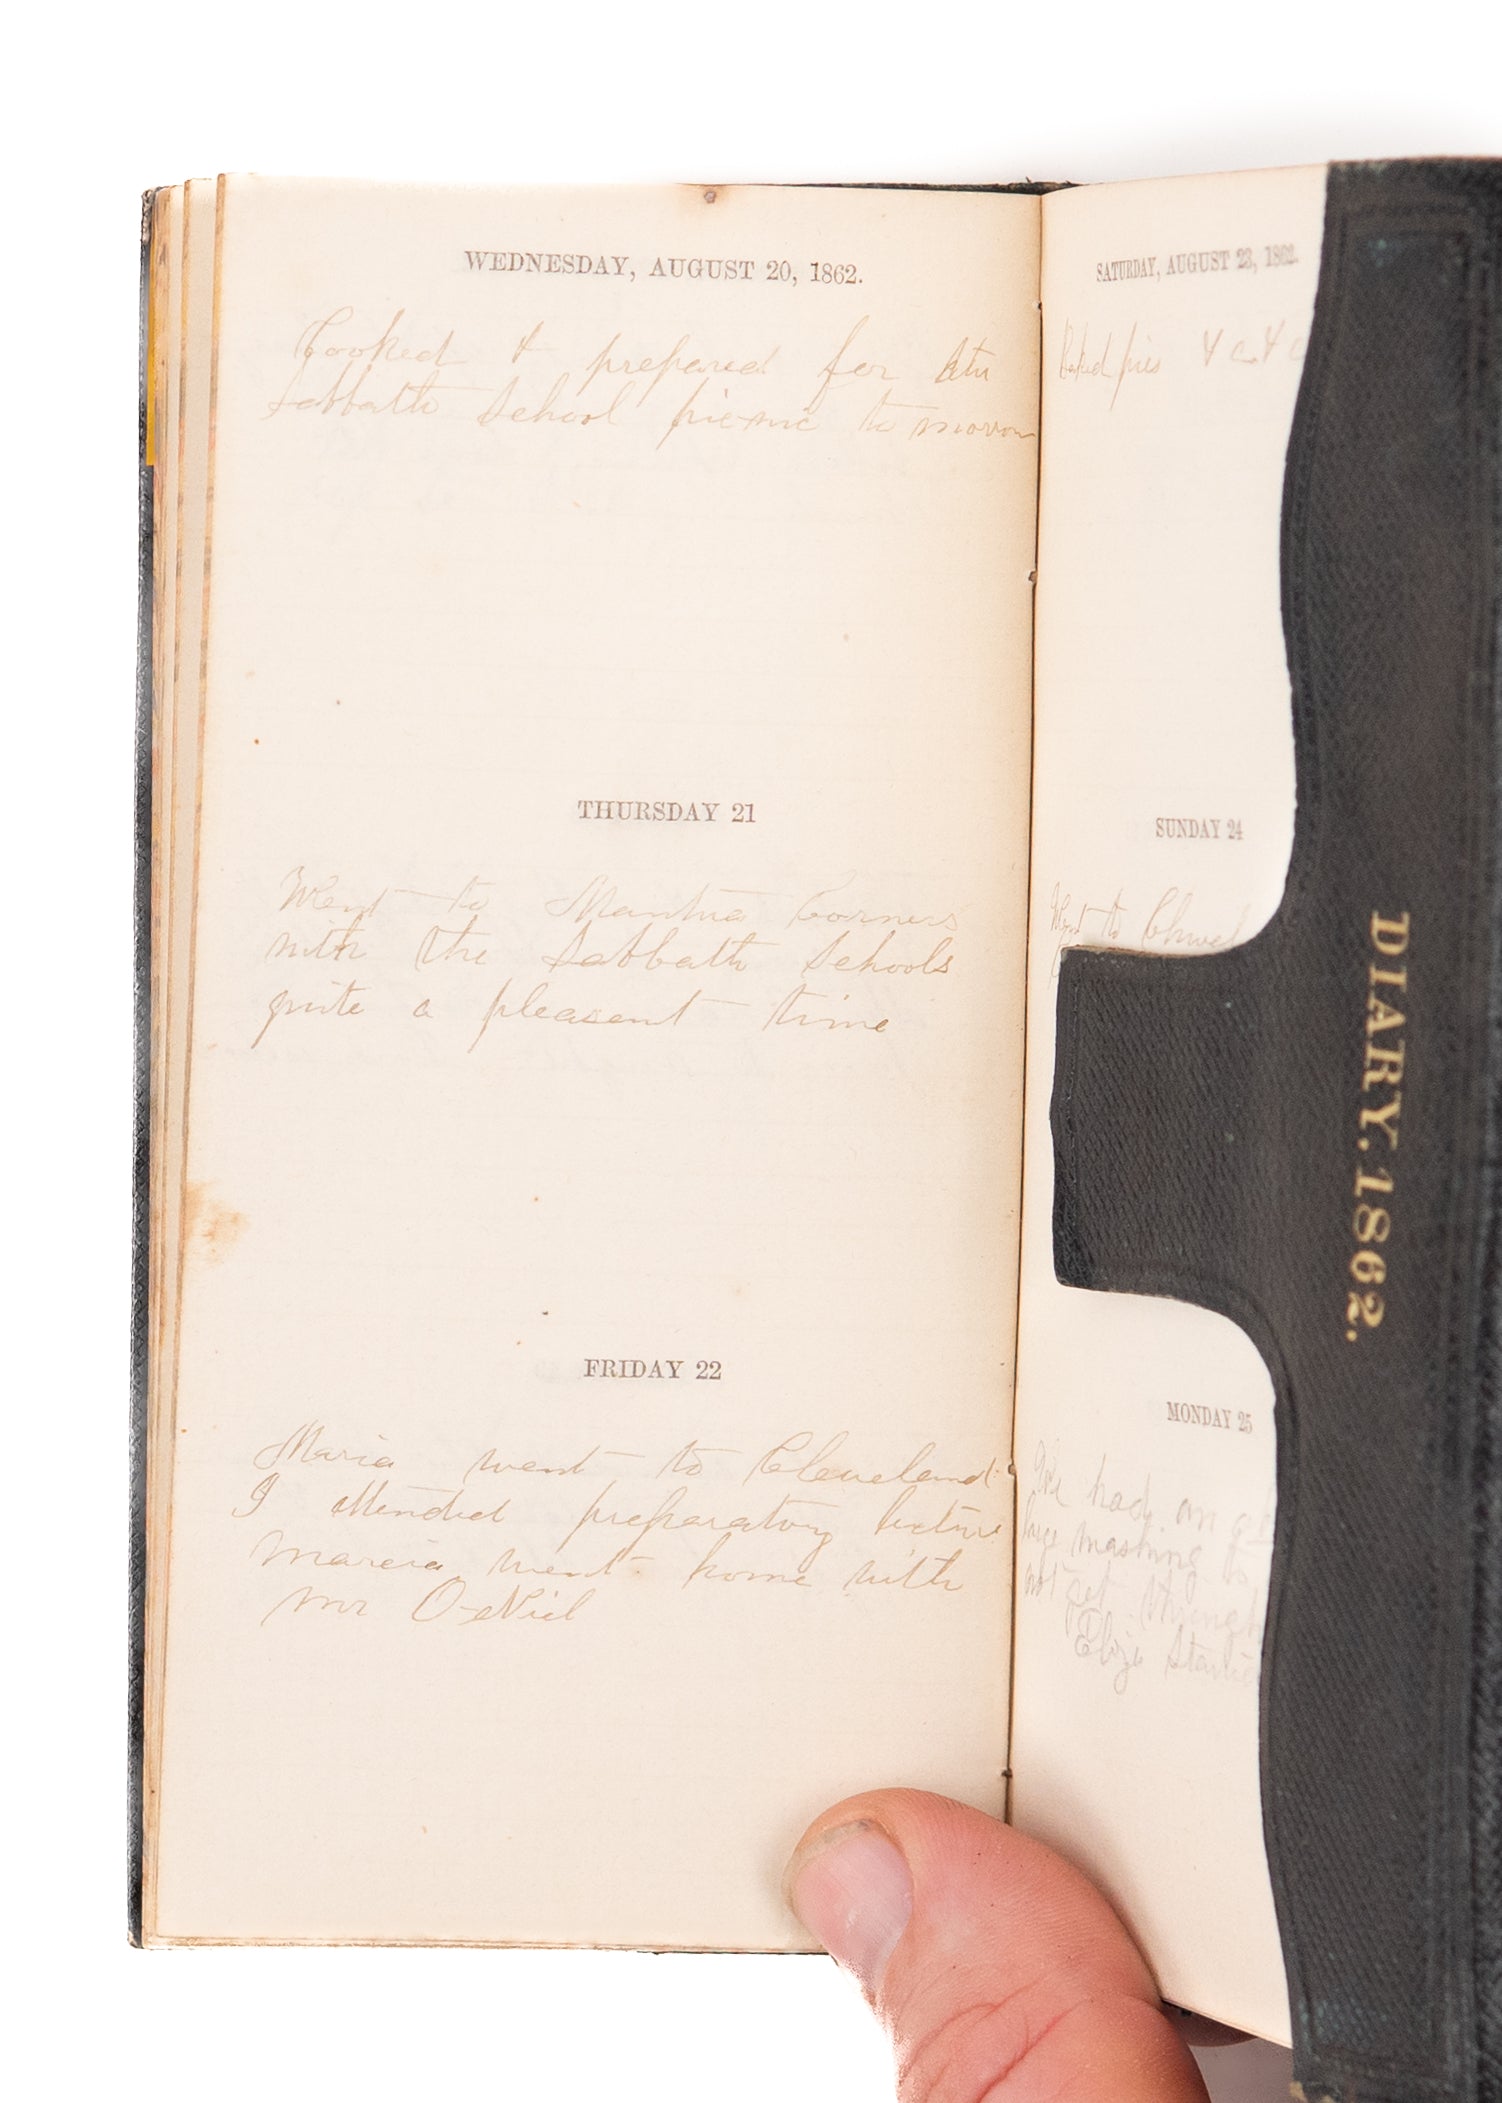 WEDNESDAY, AUGUST 20, 1862.
Cooked & prepared for the
Sabbath School picnic to morrow
THURSDAY 21
Went to Mantua Corners
with the Sabbath Schools
quite a pleasant time
FRIDAY 22
Maria went to Cleveland
I attended preparatory lecture
Marcia went home with
Mr O-eNiel
SATURDAY, AUGUST 23, 1862.
Baked pies & c & c
SUNDAY 24
Went to
MONDAY 25
We had an
large washing
not get through
Eliza
DIARY. 1862.